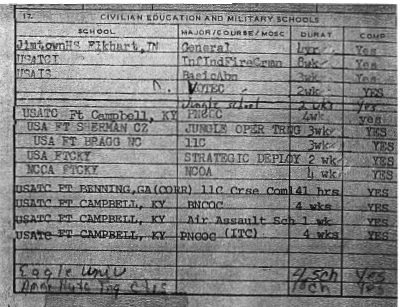 17. CIVILIAN EDUCATION AND MILITARY SCHOOLS
SCHOOL MAJOR/COURSE/MOSC DURAT. COMP
Jimtown HS Elkhart, IN General 4yr Yes
USATCI InfIndFireCrmn 8wk Yes
USAIS BasicAbn 3wk Yes
VOTEC 2wk YES
Jungle school 2 wks Yes
USATC Ft Campbell, KY PNCOC 4wk yes
USA FT SHERMAN CZ JUNGLE OPER TRNG 3wk YES
USA FT BRAGG NC 11C 3wk YES
USA FTCKY STRATEGIC DEPLOY 2 wk YES
NCCA FTCKY NCOA 4 wk YES
USATC FT BENNING,GA(CORR) 11C Crse Coml 41 hrs YES
USATC FT CAMPBELL, KY BNCOC 4 wks YES
USATC FT CAMPBELL, KY Air Assault Sch 1 wk YES
USATC FT CAMPBELL, KY PNCOC (ITC) 4 wks YES
Eagle Univ 4 sch Yes
Yes